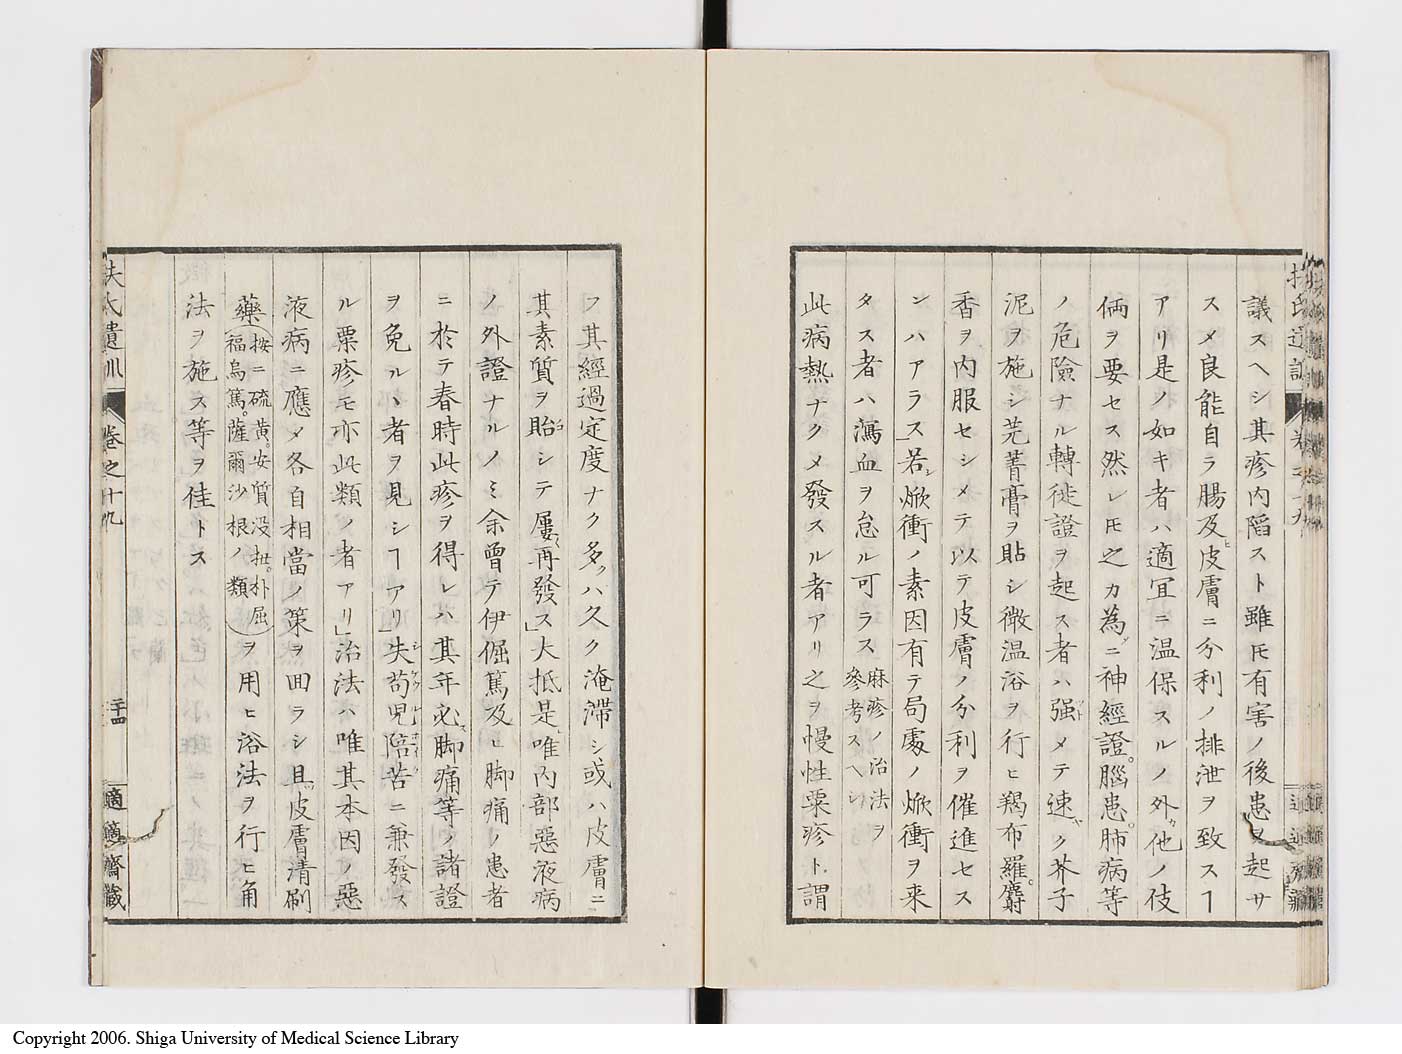 議スヘシ其疹内陷スト雖𪜈有害ノ後患ヲ起サ
スメ良能自ラ腸及ヒ皮膚ニ分利ノ排泄ヲ致スヿ
アリ是ノ如キ者ハ適宜ニ温保スルノ外他ノ伎
倆ヲ要セス然レ𪜈之カ為ニ神經證。腦患。肺病等
ノ危險ナル轉徙證ヲ起ス者ハ强メテ速ク芥子
泥ヲ施シ芫菁膏ヲ貼シ微温浴ヲ行ヒ羯布羅。麝
香ヲ内服セシメテ以テ皮膚ノ分利ヲ催進セス
ンハアラス」若シ焮衝ノ素因有テ局處ノ焮衝ヲ来
タス者ハ瀉血ヲ怠ル可ラス麻疹ノ治法ヲ
參考スヘシ
此病熱ナクメ發スル者アリ之ヲ慢性粟疹ト謂
フ其經過定度ナク多クハ久ク淹滯シ或ハ皮膚ニ
其素質ヲ貽シテ屢再發ス」大抵是唯内部惡液病
ノ外證ナルノミ余曾テ伊倔篤及ヒ脚痛ノ患者
ニ於テ春時此疹ヲ得レハ其年必ス脚痛等ノ諸證
ヲ免ルヽ者ヲ見シヿアリ」失苟児陪苦ニ兼發ス
ル粟疹モ亦此類ノ者アリ」治法ハ唯其本因ノ惡
液病ニ應メ各自相當ノ策ヲ回ラシ且ツ皮膚清刷
藥按ニ硫黄。安質没扭。朴屈
福烏篤。薩爾沙根ノ類ヲ用ヒ浴法ヲ行ヒ角
法ヲ施ス等ヲ佳トス
扶氏遺訓 卷之十九 二十四 適適齋藏